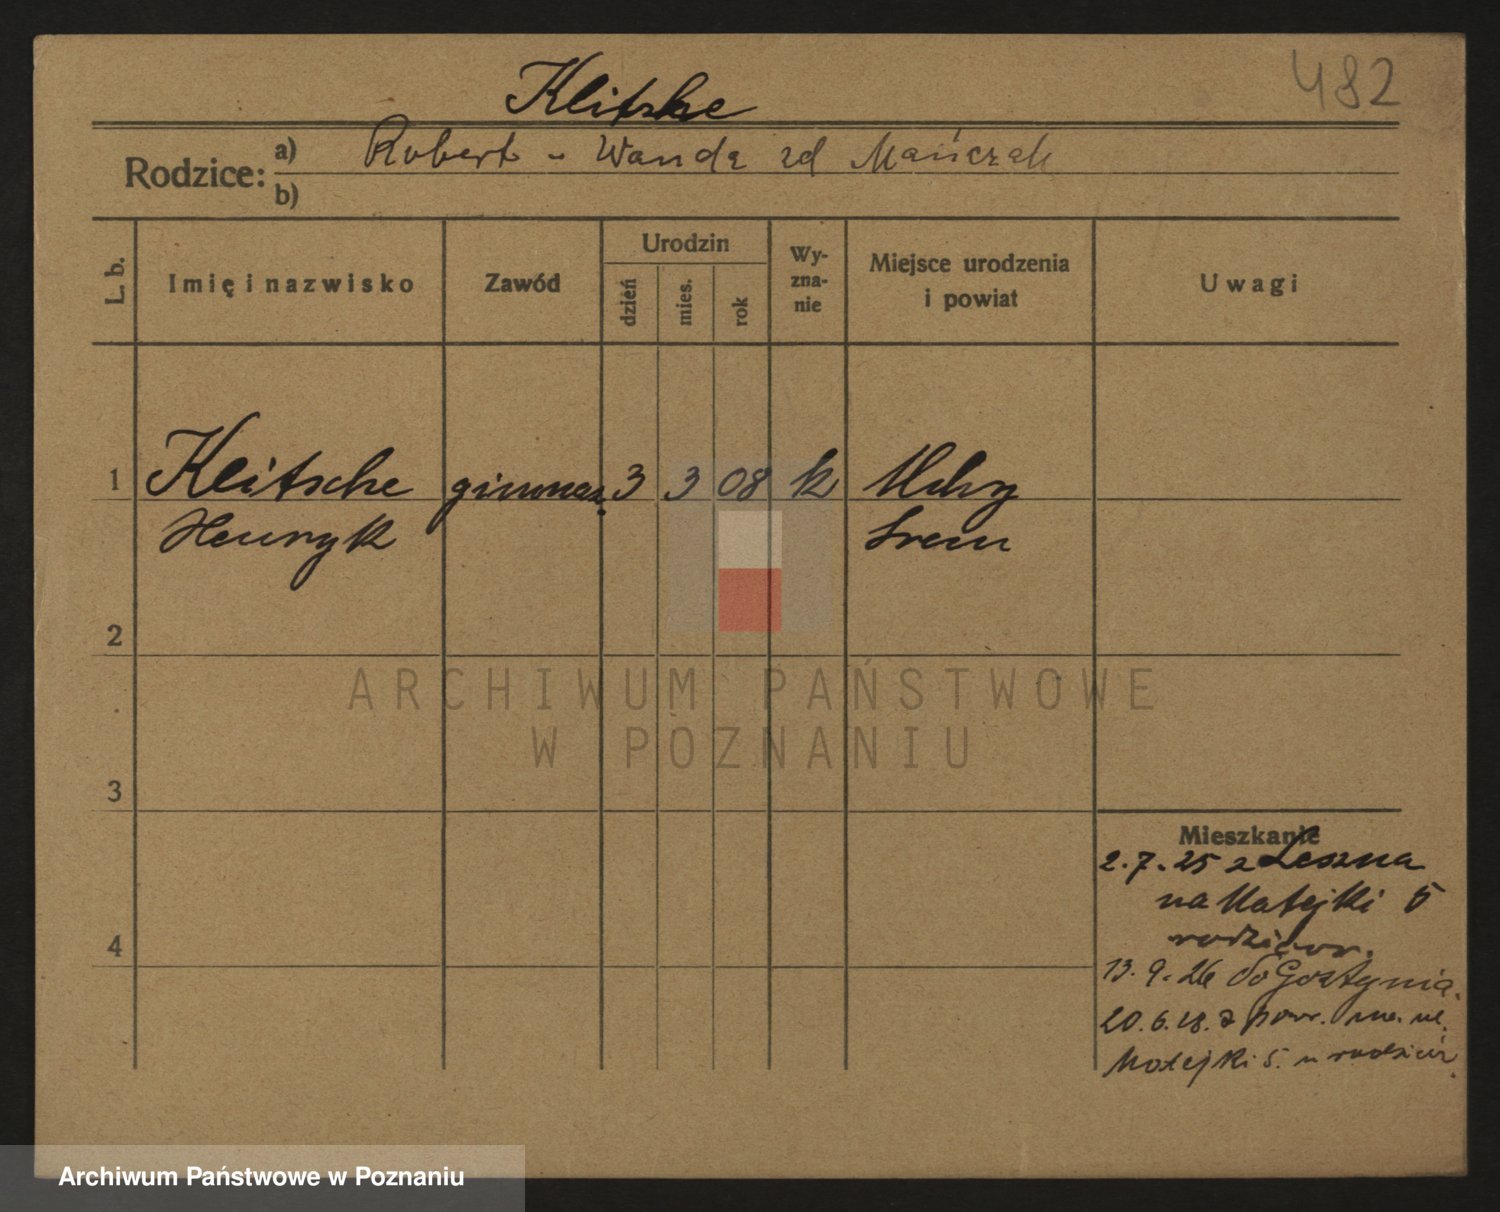 482
Klitzke
Rodzice:
a) Robert - Wanda zd Mańczak
b)
L. b.
Imię i nazwisko
Zawód
Urodzin
dzień
mies.
rok
Wy-
zna-
nie
Miejsce urodzenia
i powiat
Uwagi
1 Klitsche gimnaz. 3 3 08 k Mchy
Henryk Śrem
2
3
4
ARCHIWUM PAŃSTWOWE
W POZNANIU
Mieszkanie
2.7.25 z Leszna
na Matejki 5
rodziców.
13.9.26 do Gostynia.
20.6.28. z powr. na ul.
Matejki 5. u rodziców.
Archiwum Państwowe w Poznaniu